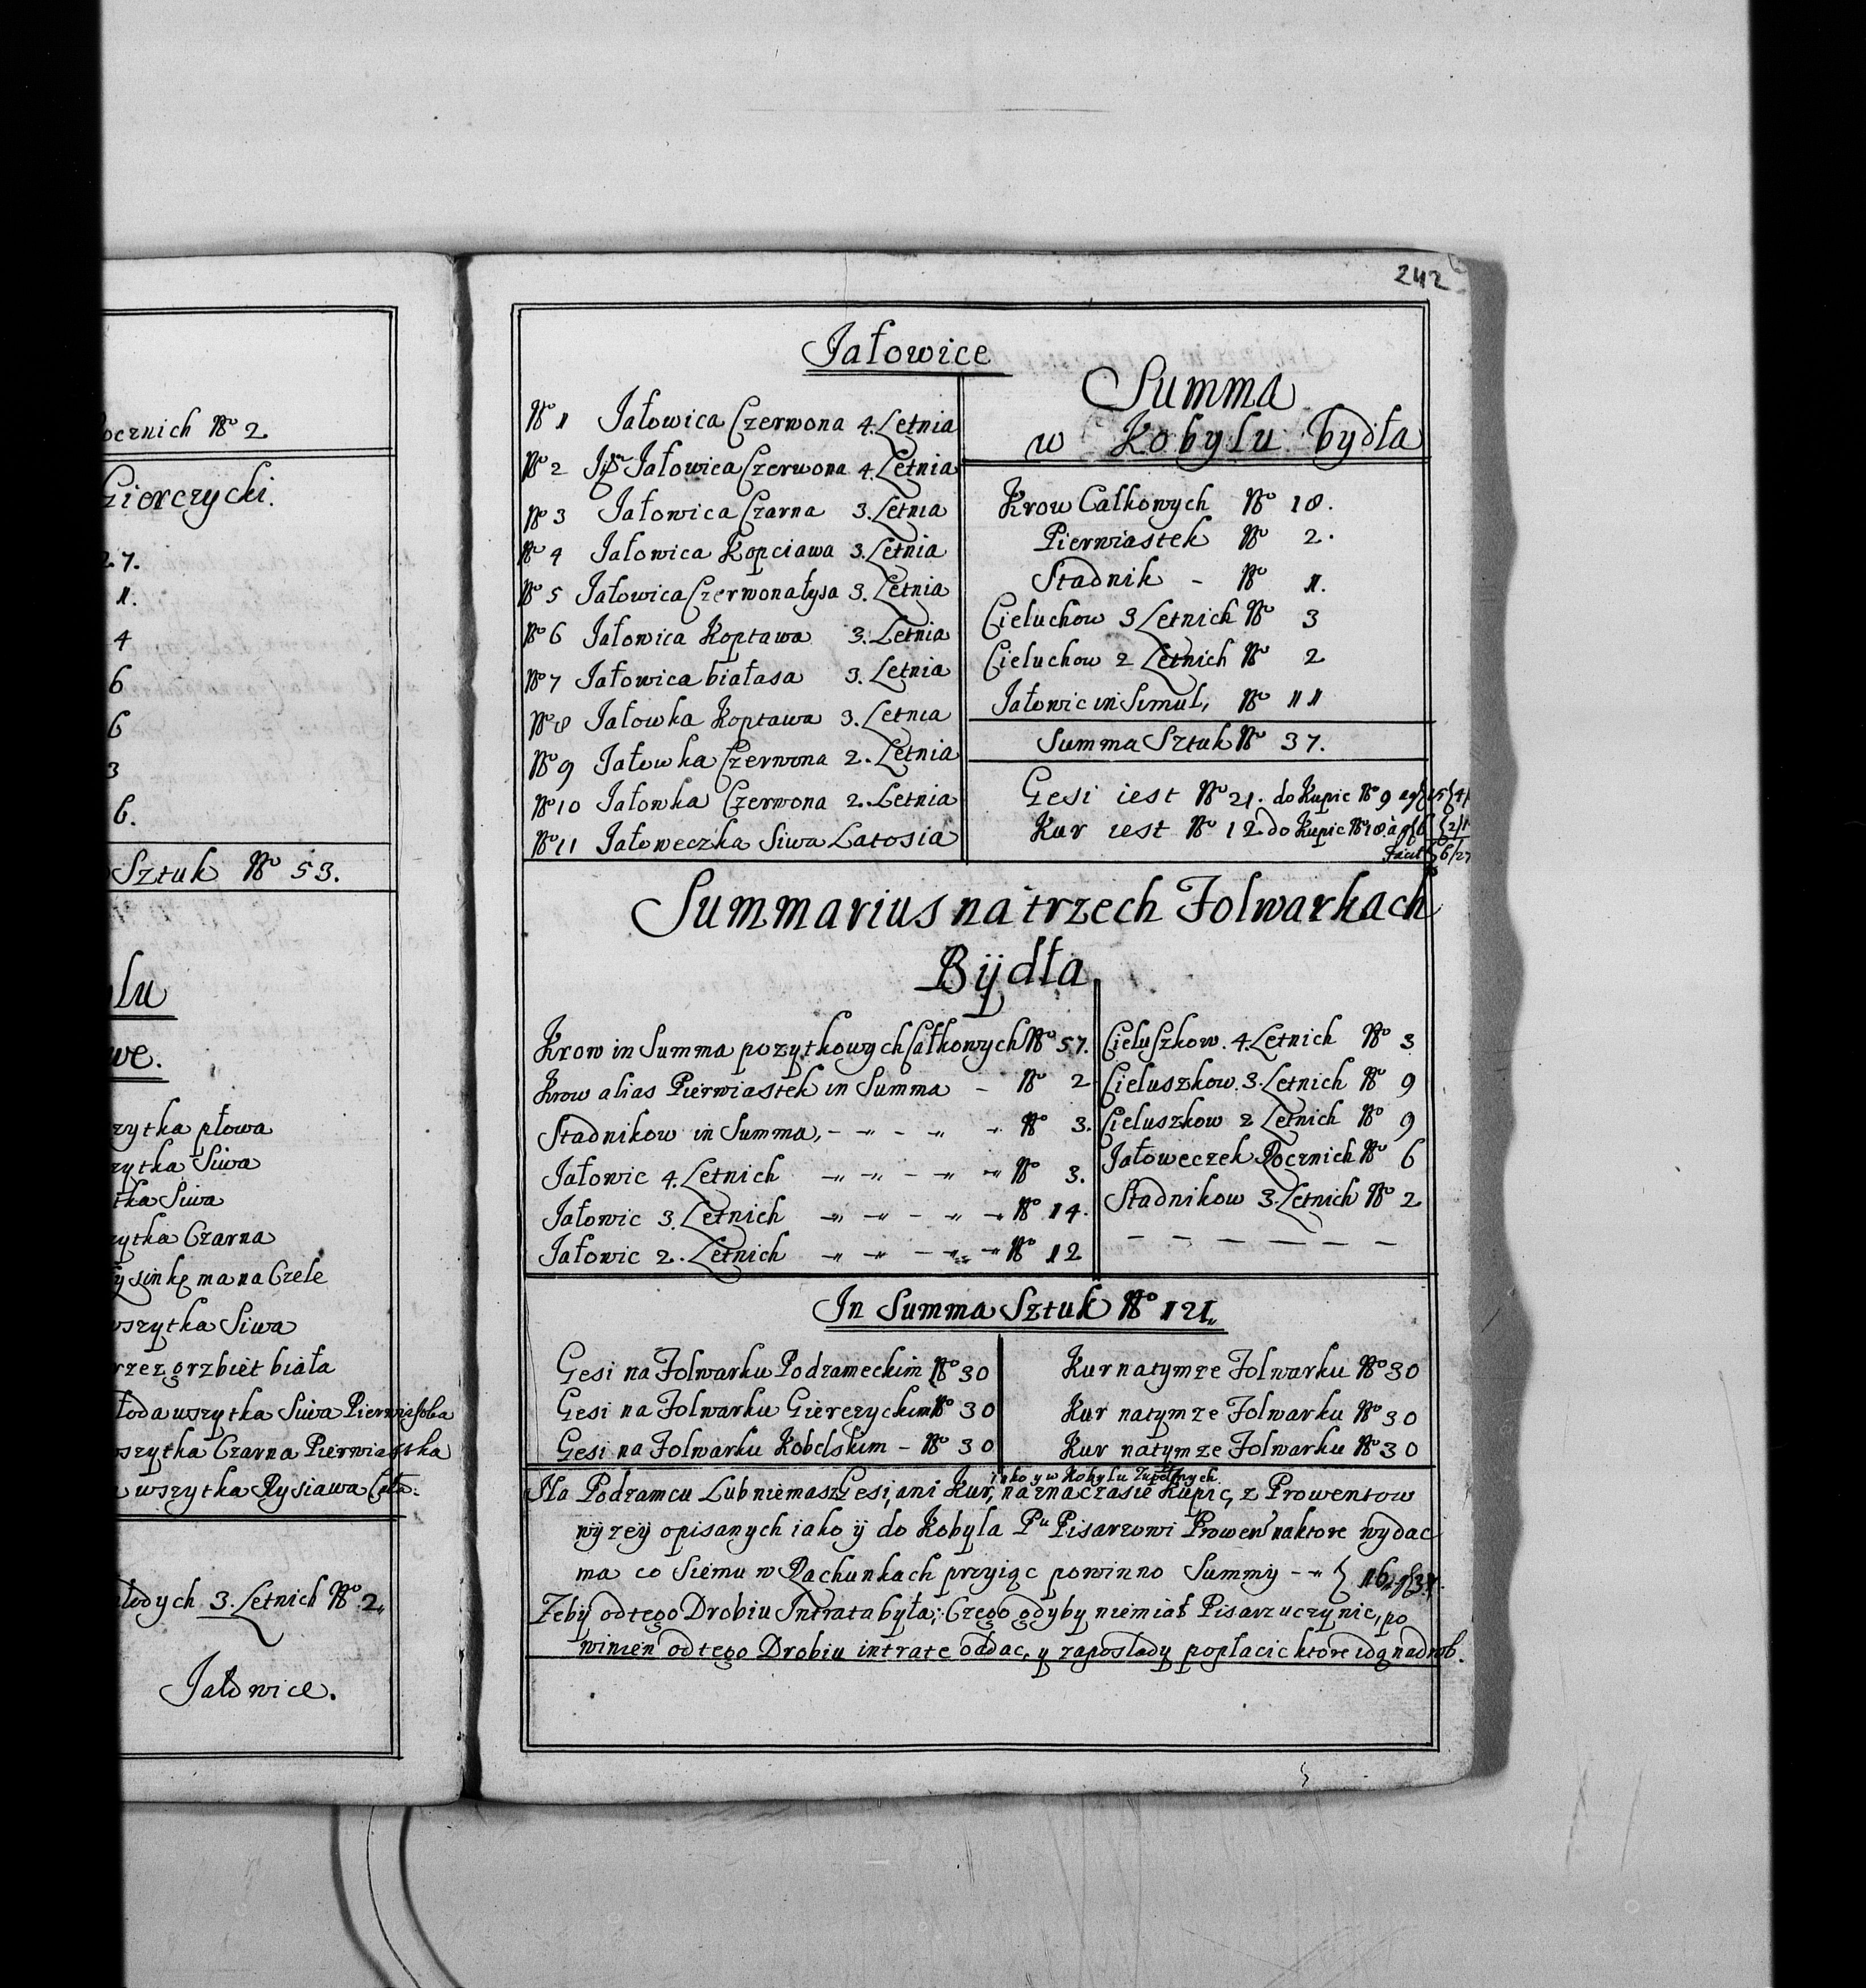 ocznich No 2
Gierczycki.
27.
1.
4
6
6
3
6.
Sztuk No 53.
lu
we.
zytka płowa
zytka Siwa
tka Siwa
zytka Czarna
łysinkę ma na Czele
wszytka Siwa
rzez grzbiet biała
łoda wszytka Siwa
wszytka Czarna Pierwiastka
wszytka Rysiawa
łodych 3. Letnich No 2
Jałowice.
242
Jałowice
No 1 Jałowica Czerwona 4. Letnia
No 2 Jałowica Czerwona 4. Letnia
No 3 Jałowica Czarna 3. Letnia
No 4 Jałowica Kopciawa 3. Letnia
No 5 Jałowica Czerwona łysa 3. Letnia
No 6 Jałowica Koptawa 3. Letnia
No 7 Jałowica białasa 3. Letnia
No 8 Jałowka Koptawa 3. Letnia
No 9 Jałowka Czerwona 2. Letnia
No 10 Jałowka Czerwona 2. Letnia
No 11 Jałoweczka Siwa Latosia
Summa
w Kobylu bydła
Krow Całkowych No 18.
Pierwiastek No 2.
Stadnik - No 1.
Cieluchow 3 Letnich No 3
Cieluchow 2 Letnich No 2
Jałowic in Simul, No 11
Summa Sztuk No 37.
Gesi iest No 21. do Kupic No 9
Kur iest No 12 do Kupic No 18.
Facit
Summarius na trzech Folwarkach
Bÿdła
Krow in Summa pozytkowych Całkowych No 57.
Krow alias Pierwiastek in Summa - No 2
Stadnikow in Summa, No 3.
Jałowic 4. Letnich No 3.
Jałowic 3. Letnich No 14.
Jałowic 2. Letnich No 12
Cieluszkow. 4. Letnich No 3
Cieluszkow. 3. Letnich No 9
Cieluszkow 2 Letnich No 9
Jałoweczek Rocznich No 6
Stadnikow 3. Letnich No 2
In Summa Sztuk No 121.
Gesi na Folwarku Podzameckim No 30
Gesi na Folwarku Gierczyckim No 30
Gesi na Folwarku Kobelskim - No 30
Kur natymze Folwarku No 30
Kur natymze Folwarku No 30
Kur natymze Folwarku No 30
iako y w Kobylu Zupełnych
Na Podzamcu Lub niemasz Gesi, ani Kur, na ten czasie Kupic, z Prowentow
wÿzeÿ opisanych iako ÿ do Kobyla Pu Pisarzowi Prowen na ktore wydac
ma co Siemu w Rachunkach przyiąc powinno Summy
Zebÿ od tego Drobiu Intrata była; Czego gdyby niemiał Pisarz uczynic, po
winien od tego Drobiu intrate oddac, y zaposlady popłacic ktore idą na drob.